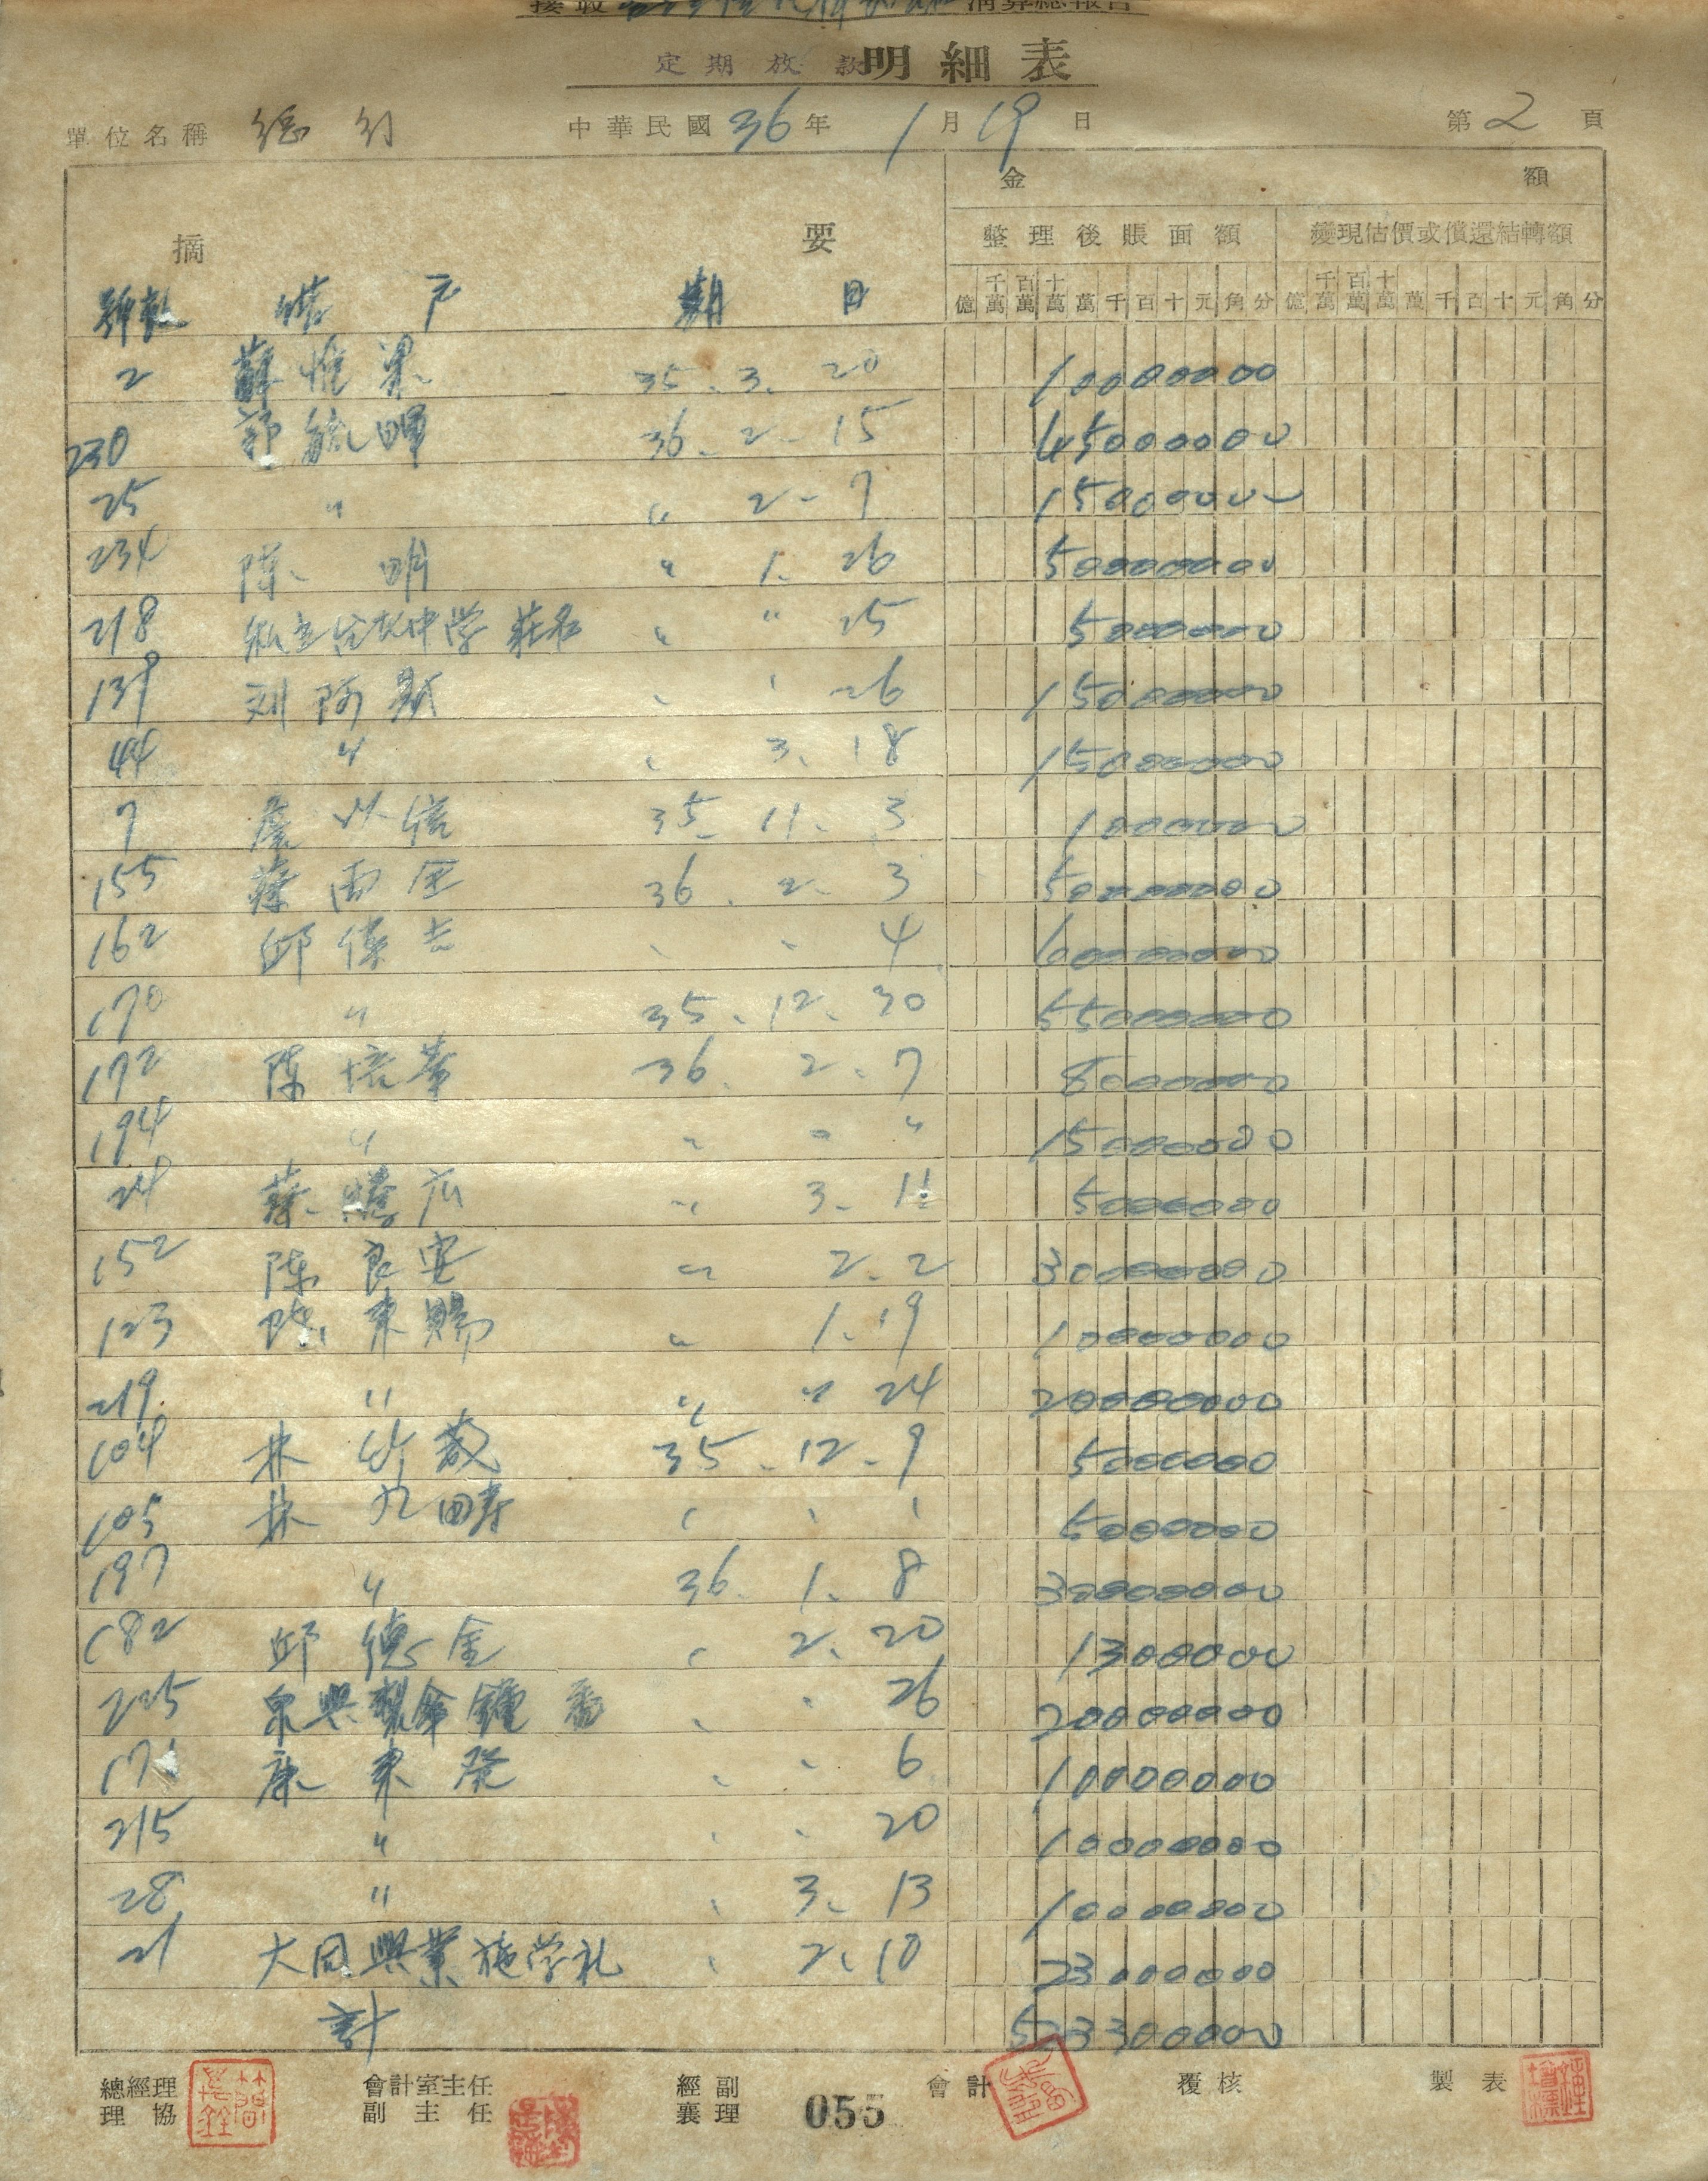 接收 清算總報告
定期放款明細表
單位名稱 總行 中華民國36年1月19日 第2頁
摘要 金額
整理後賬面額 變現估價或償還結轉額
億 千萬 百萬 十萬 萬 千 百 十 元 角 分 億 千萬 百萬 十萬 萬 千 百 十 元 角 分
號數 戶 期日
2 蘇惟梁 35. 3. 20 10000000
230 郭毓暉 36. 2. 15 45000000
25 〃 〃 2. 7 15000000
234 陳 明 〃 1. 26 50000000
218 私立 中学 莊名 〃 〃 25 5000000
139 刘阿 26 15000000
44 〃 3. 18 15000000
7 詹以信 35. 11. 3 1000000
155 蔡雨金 36. 2. 3 50000000
162 邱 4 0000000
170 〃 35. 12. 30 55000000
172 陳培華 36. 2. 7 8000000
194 〃 〃 〃 〃 15000000
24 蔡 〃 3. 11 5000000
152 陳良安 〃 2. 2 30000000
123 陳東賜 〃 1. 19 10000000
219 〃 〃 〃 24 20000000
104 林 35. 12. 9 5000000
105 林九疇 5000000
197 〃 36. 1. 8 30000000
182 邱德金 2. 20 1300000
225 泉興製傘 26 20000000
17 康東發 6 10000000
215 〃 20 10000000
28 〃 3. 13 10000000
21 大同興業施学礼 2. 10 23000000
計 523300000
總經理 會計室主任 經副 會計 覆核 製表
理協 副主任 襄理 055